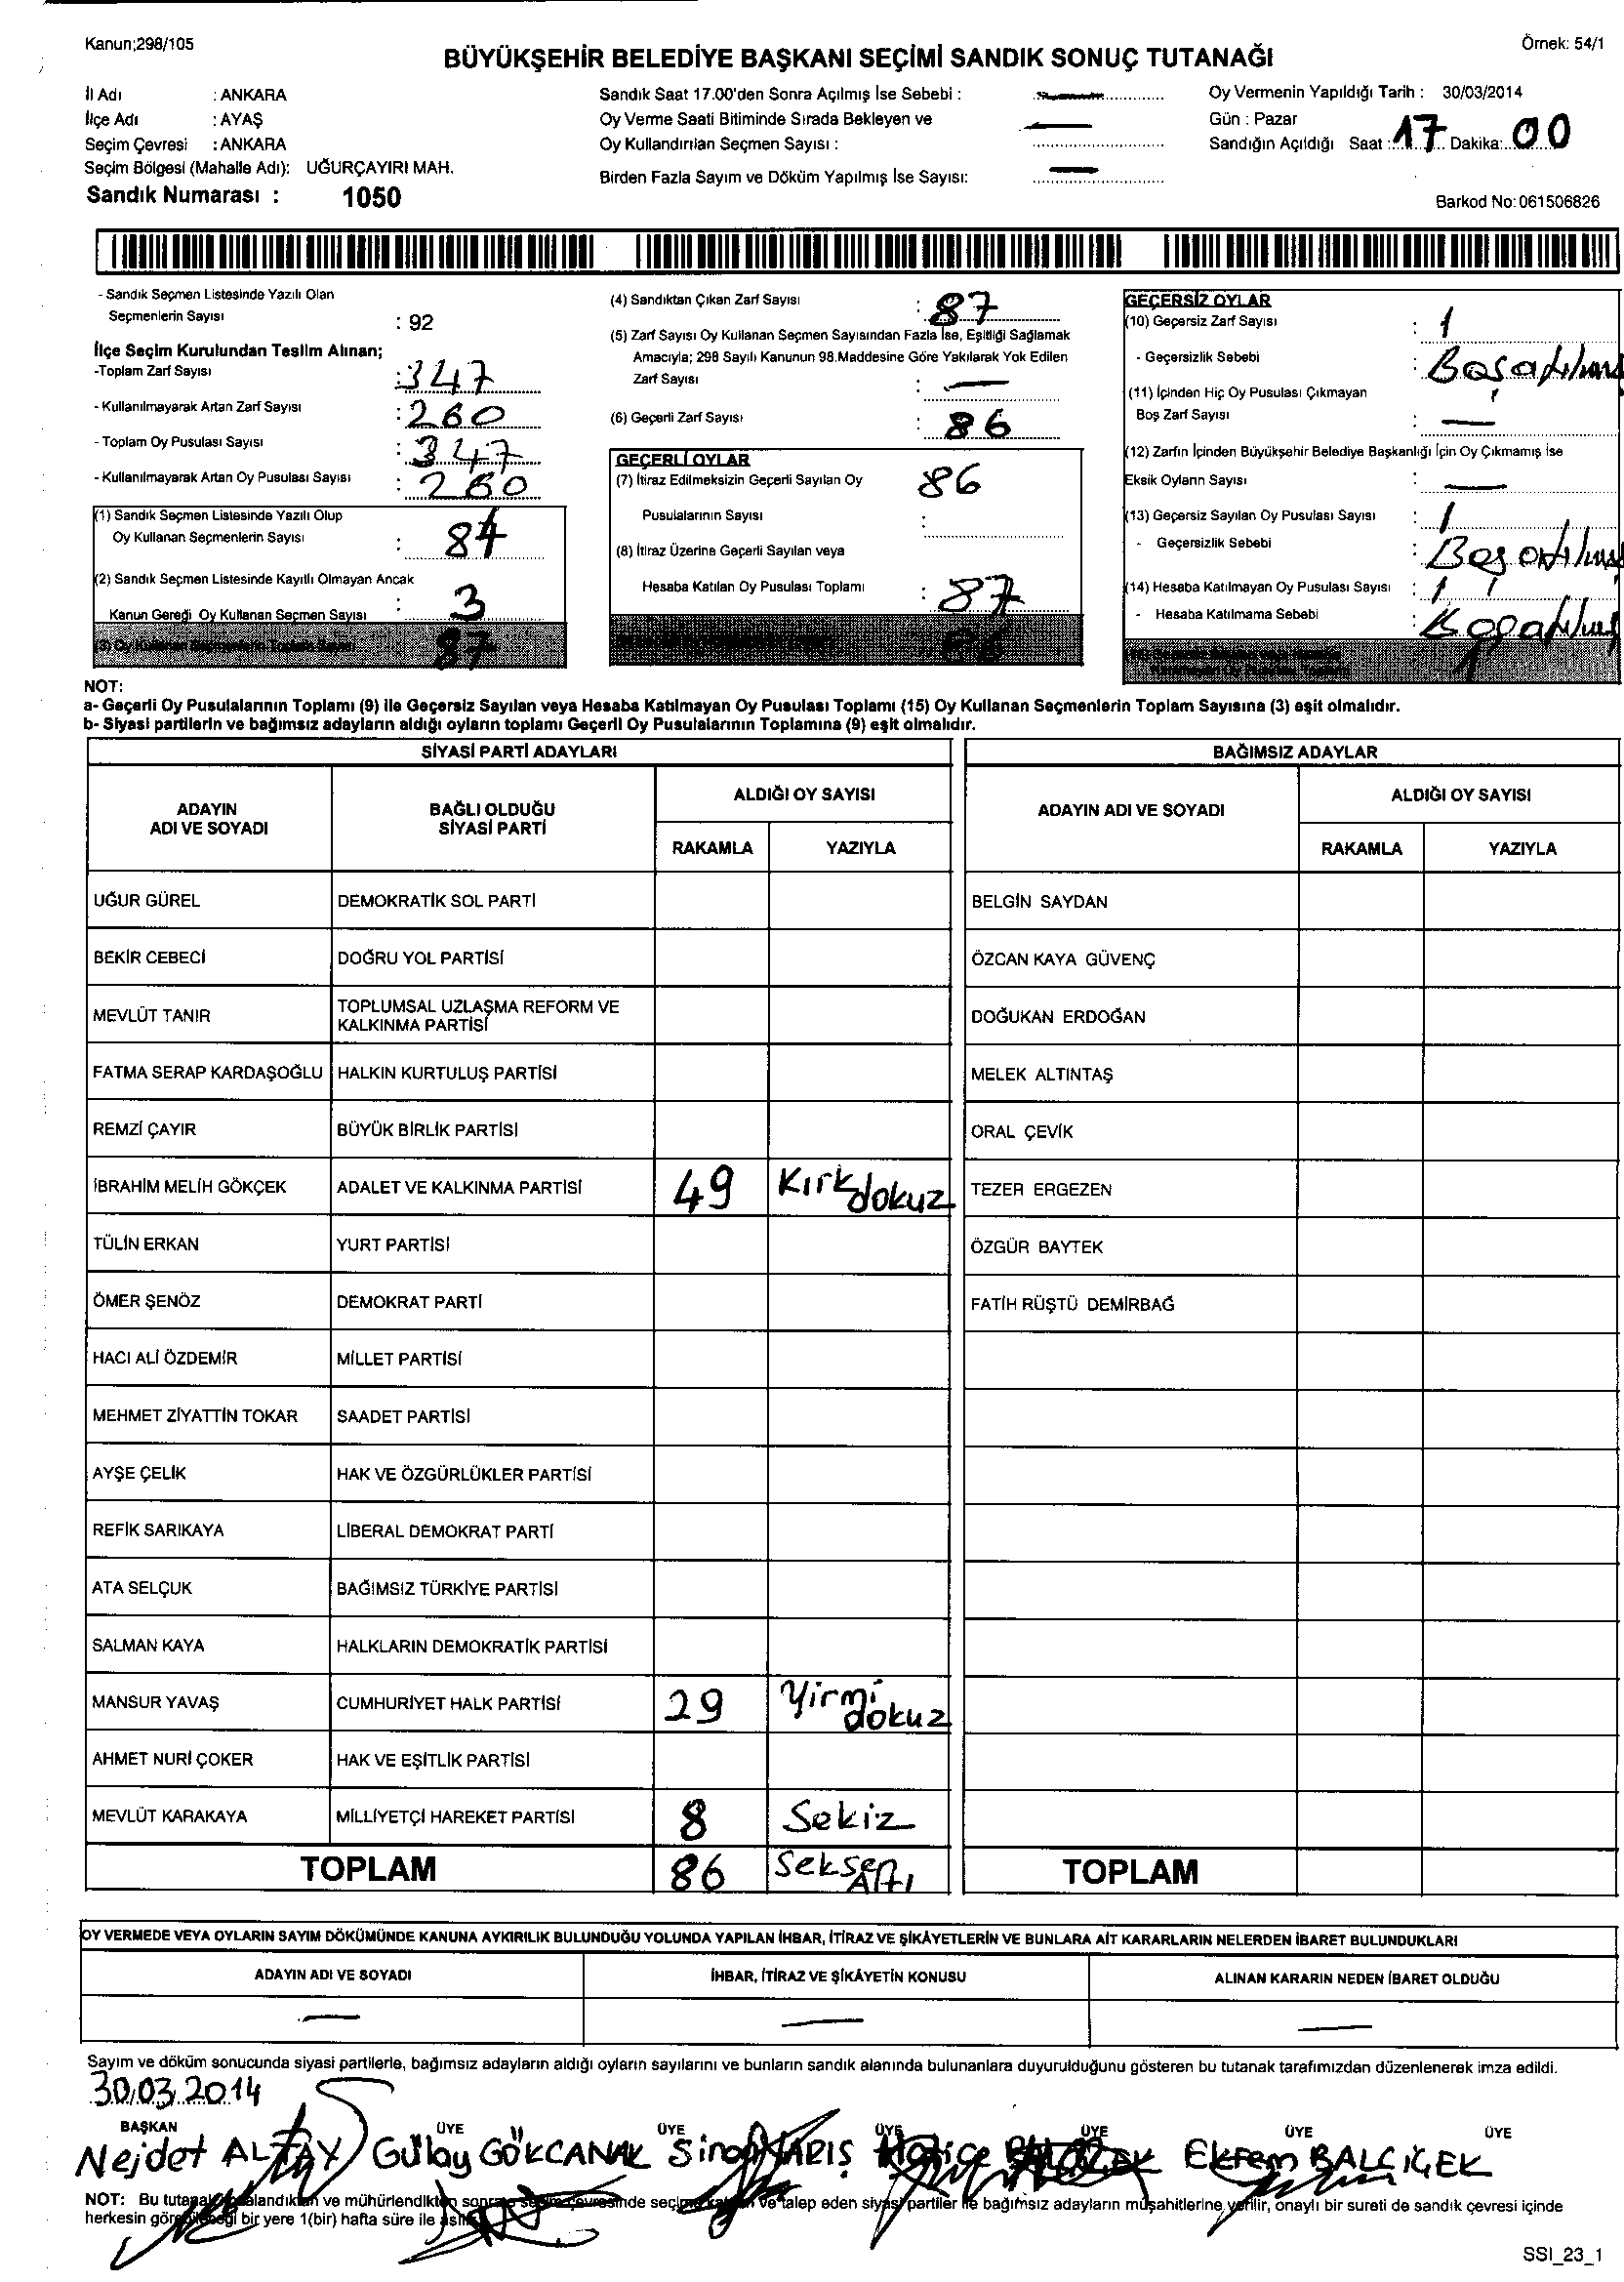 Kanun;298/105
Örnek: 54/1
BÜYÜKŞEHİR BELEDİYE BAŞKANI SEÇİMİ SANDIK SONUÇ TUTANAĞI
İl Adı : ANKARA
İlçe Adı : AYAŞ
Seçim Çevresi : ANKARA
Seçim Bölgesi (Mahalle Adı): UĞURÇAYIRI MAH.
Sandık Numarası : 1050
Sandık Saat 17.00'den Sonra Açılmış İse Sebebi :
Oy Verme Saati Bitiminde Sırada Bekleyen ve
Oy Kullandırılan Seçmen Sayısı :
Birden Fazla Sayım ve Döküm Yapılmış İse Sayısı:
Oy Vermenin Yapıldığı Tarih : 30/03/2014
Gün : Pazar
Sandığın Açıldığı Saat : 17 Dakika: 00
Barkod No: 061506826
- Sandık Seçmen Listesinde Yazılı Olan
Seçmenlerin Sayısı : 92
İlçe Seçim Kurulundan Teslim Alınan;
-Toplam Zarf Sayısı : 347
- Kullanılmayarak Artan Zarf Sayısı : 260
- Toplam Oy Pusulası Sayısı : 347
- Kullanılmayarak Artan Oy Pusulası Sayısı : 260
(1) Sandık Seçmen Listesinde Yazılı Olup
Oy Kullanan Seçmenlerin Sayısı : 84
(2) Sandık Seçmen Listesinde Kayıtlı Olmayan Ancak
Kanun Gereği Oy Kullanan Seçmen Sayısı : 3
(3) Oy Kullanan Seçmenlerin Toplam Sayısı 87
(4) Sandıktan Çıkan Zarf Sayısı : 87
(5) Zarf Sayısı Oy Kullanan Seçmen Sayısından Fazla İse, Eşitliği Sağlamak
Amacıyla; 298 Sayılı Kanunun 98.Maddesine Göre Yakılarak Yok Edilen
Zarf Sayısı : —
(6) Geçerli Zarf Sayısı : 86
GEÇERLİ OYLAR
(7) İtiraz Edilmeksizin Geçerli Sayılan Oy 86
Pusulalarının Sayısı :
(8) İtiraz Üzerine Geçerli Sayılan veya
Hesaba Katılan Oy Pusulası Toplamı : 87
86
GEÇERSİZ OYLAR
(10) Geçersiz Zarf Sayısı : 1
- Geçersizlik Sebebi : Boş atılmış
(11) İçinden Hiç Oy Pusulası Çıkmayan
Boş Zarf Sayısı : —
(12) Zarfın İçinden Büyükşehir Belediye Başkanlığı İçin Oy Çıkmamış İse
Eksik Oyların Sayısı : —
(13) Geçersiz Sayılan Oy Pusulası Sayısı : 1
- Geçersizlik Sebebi : Boş atılmış
(14) Hesaba Katılmayan Oy Pusulası Sayısı : 1
- Hesaba Katılmama Sebebi :
1
NOT:
a- Geçerli Oy Pusulalarının Toplamı (9) ile Geçersiz Sayılan veya Hesaba Katılmayan Oy Pusulası Toplamı (15) Oy Kullanan Seçmenlerin Toplam Sayısına (3) eşit olmalıdır.
b- Siyasi partilerin ve bağımsız adayların aldığı oyların toplamı Geçerli Oy Pusulalarının Toplamına (9) eşit olmalıdır.
SİYASİ PARTİ ADAYLARI
BAĞIMSIZ ADAYLAR
ADAYIN ADI VE SOYADI
BAĞLI OLDUĞU SİYASİ PARTİ
ALDIĞI OY SAYISI
RAKAMLA YAZIYLA
ADAYIN ADI VE SOYADI
ALDIĞI OY SAYISI
RAKAMLA YAZIYLA
UĞUR GÜREL DEMOKRATİK SOL PARTİ BELGİN SAYDAN
BEKİR CEBECİ DOĞRU YOL PARTİSİ ÖZCAN KAYA GÜVENÇ
MEVLÜT TANIR TOPLUMSAL UZLAŞMA REFORM VE KALKINMA PARTİSİ DOĞUKAN ERDOĞAN
FATMA SERAP KARDAŞOĞLU HALKIN KURTULUŞ PARTİSİ MELEK ALTINTAŞ
REMZİ ÇAYIR BÜYÜK BİRLİK PARTİSİ ORAL ÇEVİK
İBRAHİM MELİH GÖKÇEK ADALET VE KALKINMA PARTİSİ 49 Kırkdokuz TEZER ERGEZEN
TÜLİN ERKAN YURT PARTİSİ ÖZGÜR BAYTEK
ÖMER ŞENÖZ DEMOKRAT PARTİ FATİH RÜŞTÜ DEMİRBAĞ
HACI ALİ ÖZDEMİR MİLLET PARTİSİ
MEHMET ZİYATTİN TOKAR SAADET PARTİSİ
AYŞE ÇELİK HAK VE ÖZGÜRLÜKLER PARTİSİ
REFİK SARIKAYA LİBERAL DEMOKRAT PARTİ
ATA SELÇUK BAĞIMSIZ TÜRKİYE PARTİSİ
SALMAN KAYA HALKLARIN DEMOKRATİK PARTİSİ
MANSUR YAVAŞ CUMHURİYET HALK PARTİSİ 29 Yirmi dokuz
AHMET NURİ ÇOKER HAK VE EŞİTLİK PARTİSİ
MEVLÜT KARAKAYA MİLLİYETÇİ HAREKET PARTİSİ 8 Sekiz
TOPLAM 86 Seksen Altı TOPLAM
OY VERMEDE VEYA OYLARIN SAYIM DÖKÜMÜNDE KANUNA AYKIRILIK BULUNDUĞU YOLUNDA YAPILAN İHBAR, İTİRAZ VE ŞİKÂYETLERİN VE BUNLARA AİT KARARLARIN NELERDEN İBARET BULUNDUKLARI
ADAYIN ADI VE SOYADI İHBAR, İTİRAZ VE ŞİKÂYETİN KONUSU ALINAN KARARIN NEDEN İBARET OLDUĞU
— — —
Sayım ve döküm sonucunda siyasi partilerle, bağımsız adayların aldığı oyların sayılarını ve bunların sandık alanında bulunanlara duyurulduğunu gösteren bu tutanak tarafımızdan düzenlenerek imza edildi.
30.03.2014
BAŞKAN ÜYE ÜYE ÜYE ÜYE ÜYE ÜYE
Nejdet ALTAY Gülay GÖKCANAK Sinan Hatice Ekrem BALÇİÇEK
NOT: Bu tutanak ve mühürlendikten sonra seçim çevresinde ve talep eden siyasi partiler ile bağımsız adayların müşahitlerine verilir, onaylı bir sureti de sandık çevresi içinde
herkesin görebileceği bir yere 1(bir) hafta süre ile
SSI_23_1